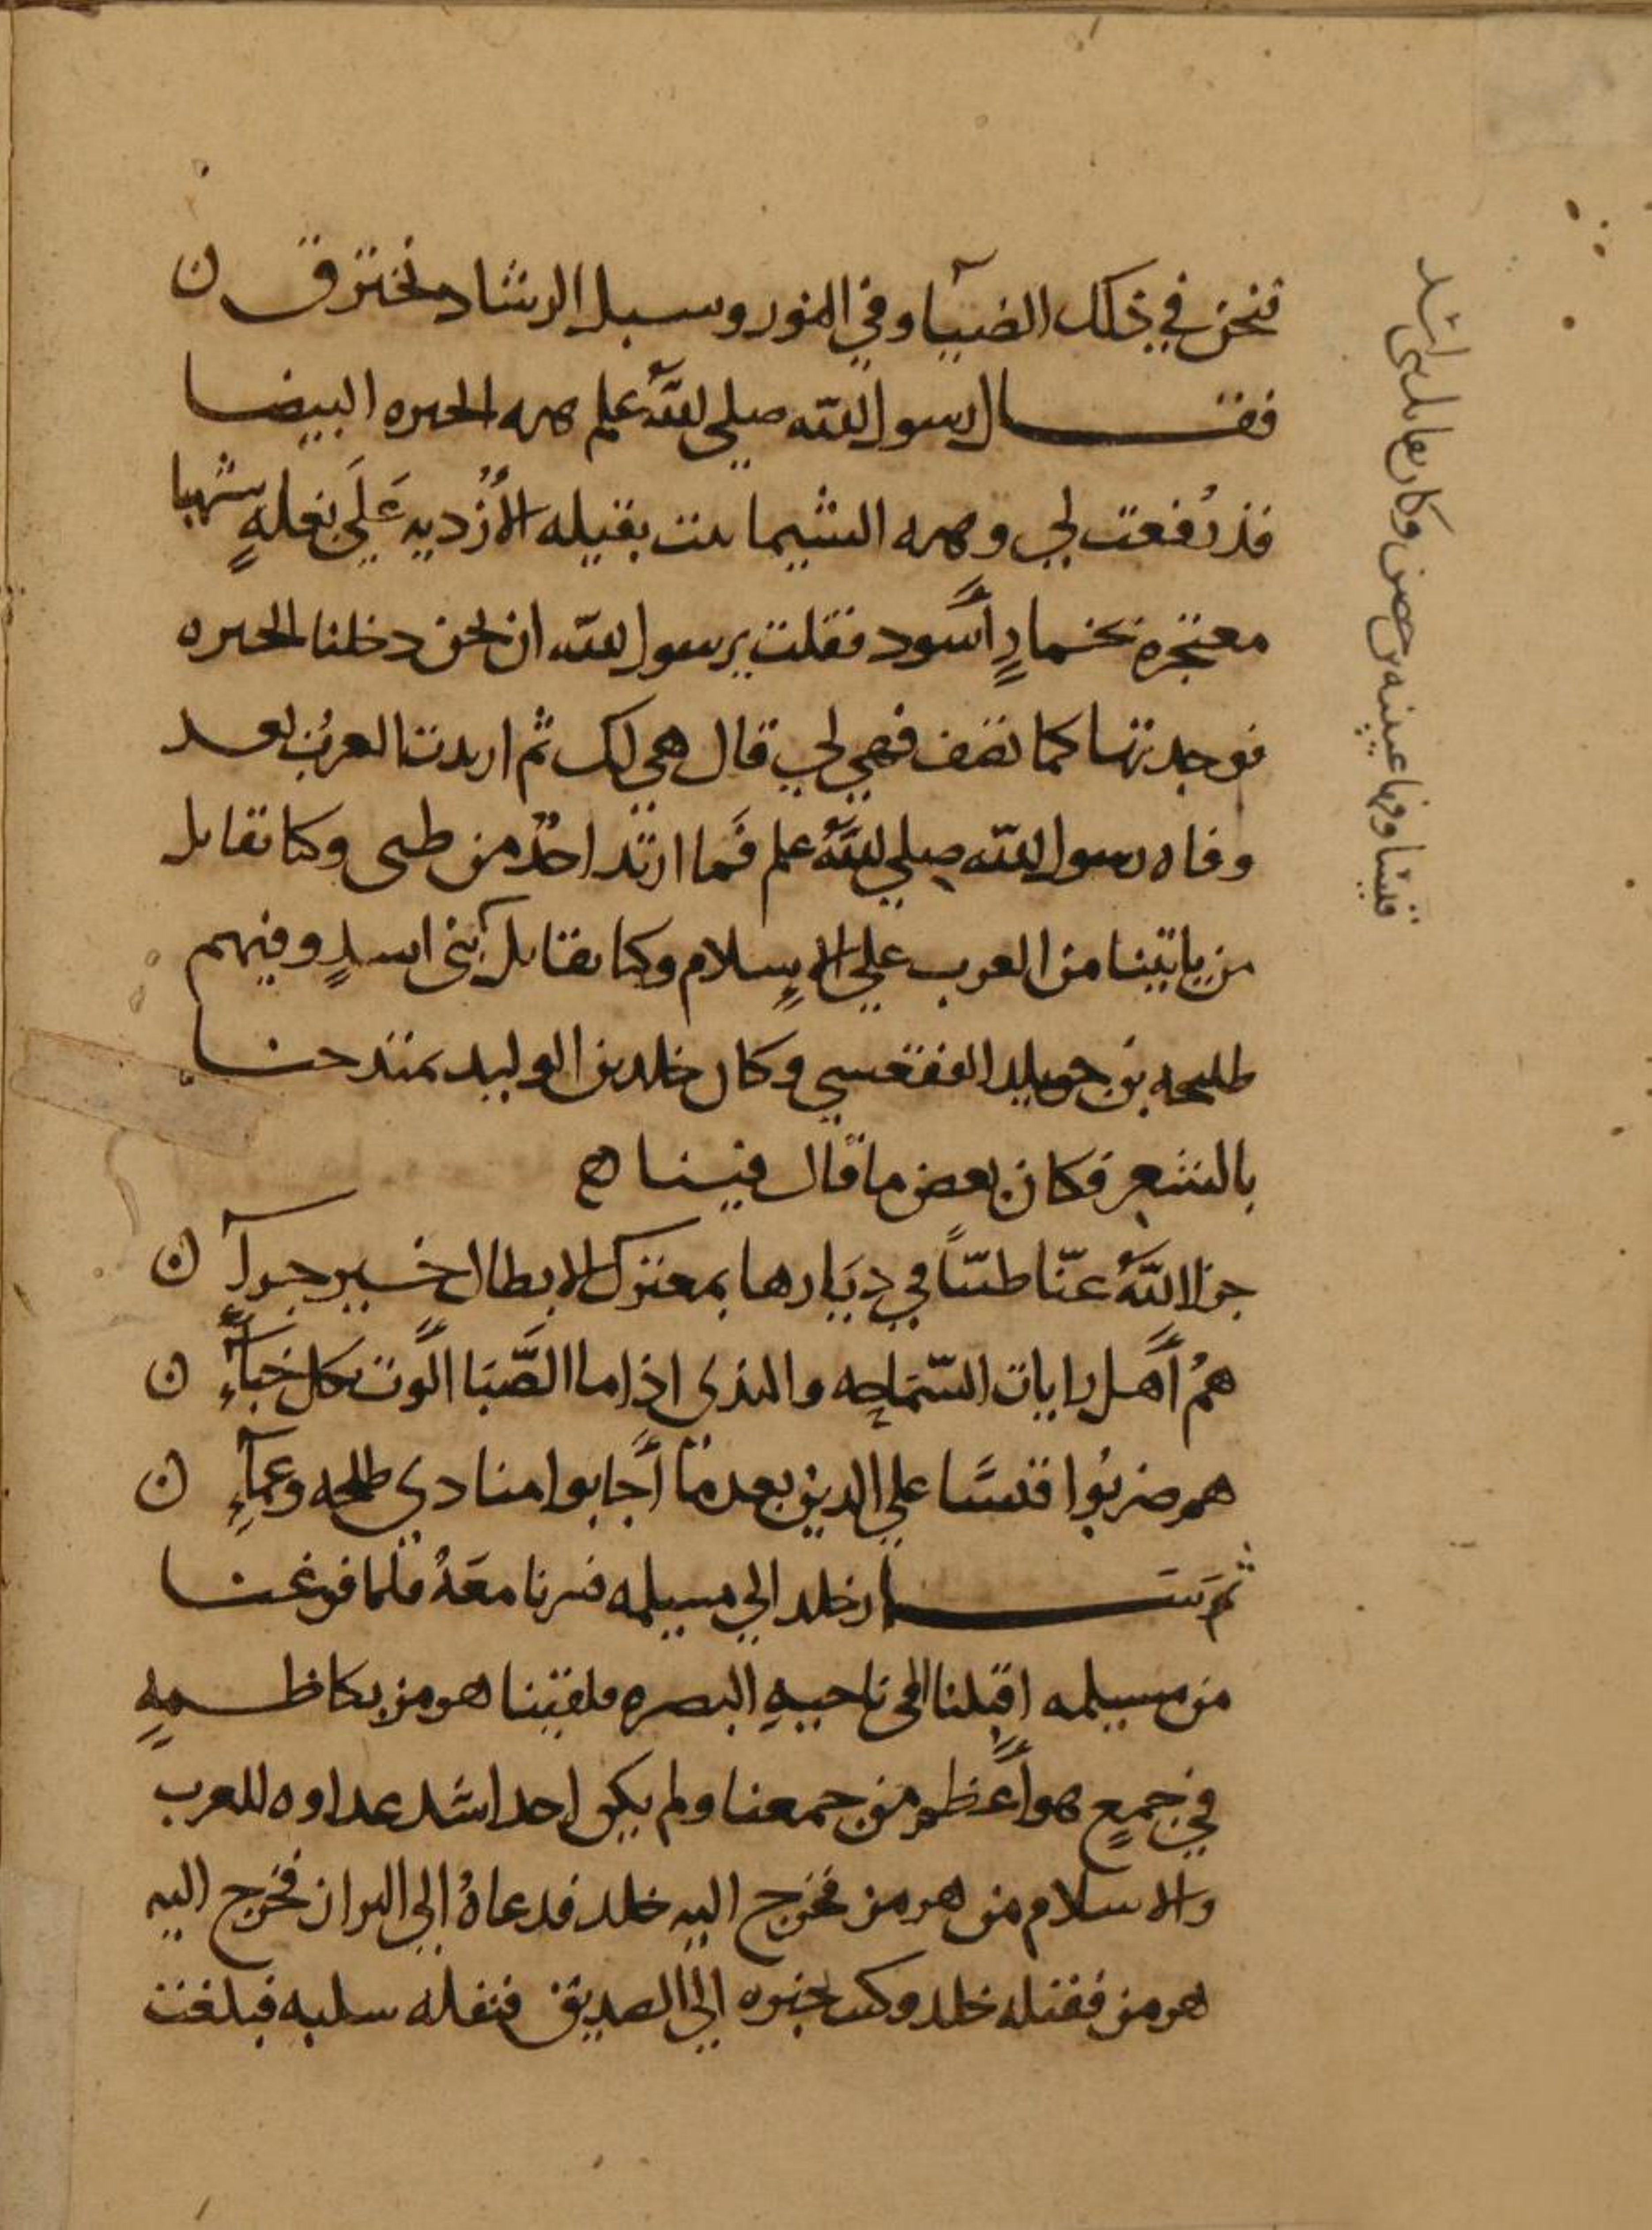 فنحن في ذلك الضيآ وفي النور وسبل الرشاد نخترق ن
فقال رسول الله صلى الله علم هذه الحيره البيضا
قد رُفعت لي وهذه الشيما بنت بقيله الأزْديه عَلَى بغلهٍ شهبا
معتجره بخمارٍ أسود فقلت يرسول الله ان نحن دخلنا الحيره
فوجدتها كما تصف فهي لي قال هي لك ثم اربدت العربُ بعد
وفاه رسول الله صلي اللهُ علم فَما ارتد احدٌ من طيى وكنا نقاتل
من ياتينا من العرب علي الاسلام وكنا نقاتل بني اسدٍ وفيهم
طليحه بن خويلد الفقعسي وكان خلد بن الوليد يمتدحنا
بالشعر فكان بعض ما قال فينا ه
جزا اللهُ عنّا طيّئاً في ديَارها بمعترك الابطال خير جزآءٍ ن
همُ أهل رايات السّمَاحه والندى اذا ما الصَّبَا الوت بكل خبآءٍ ن
هم ضربُوا قيسًا علي الدين بعد مَا أجابوا منادي ظلمه وعمآءٍ ن
ثم سار خلد الي مسيلمه فسرنا معَهُ فلما فرغنا
من مسيلمه اقبلنا الى ناحيهِ البصره فلقينا هرمز بكاظمهٍ
في جمعٍ هو أعظم من جمعنا ولم يكن احد اشد عداوه للعرب
والاسلام من هرمز فخرج اليه خلد فدعاهُ الي البراز فخرج اليه
هرمز فقتله خلد وكتب بخبره الي الصديق فنفله سلبه فبلغت
قيسًا وفيها عيينه بن حصن وكنا نقاتل بني اسد